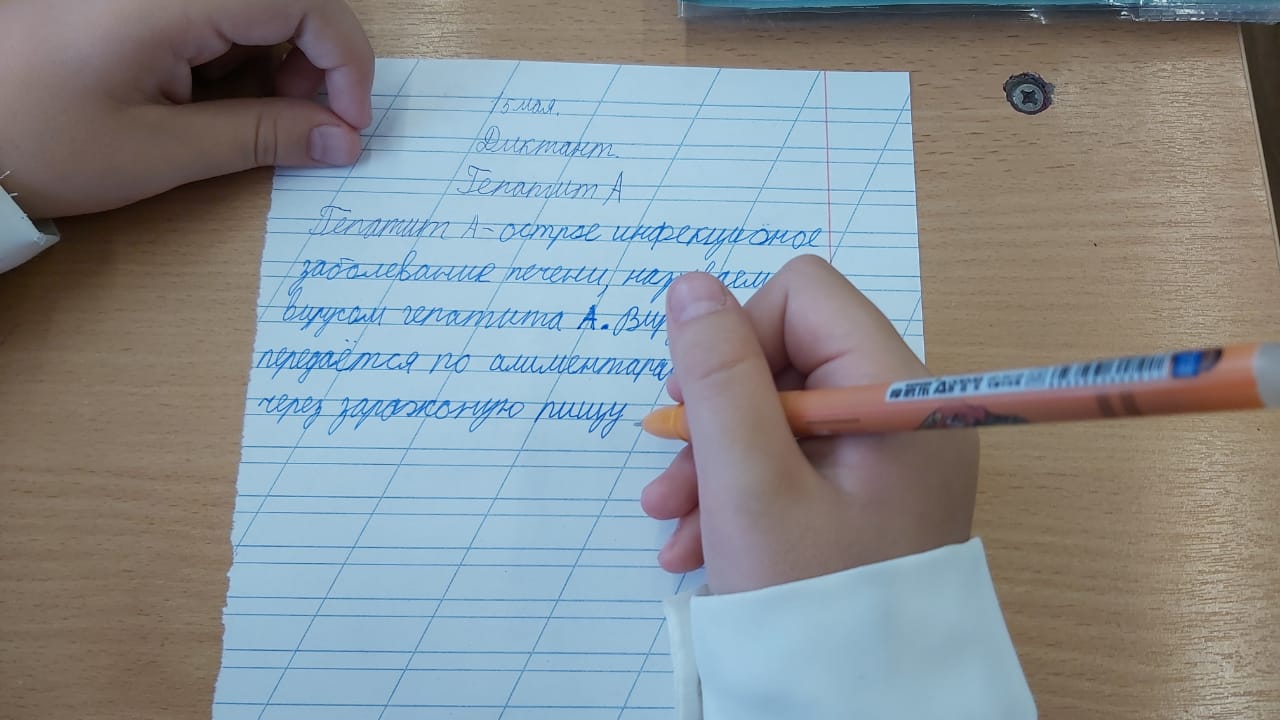 5 мая.
Диктант.
Гепатит А
Гепатит А - острое инфекционое
заболевание печени,
вирусом гепатита А.
передаётся по
через зарожоную пищу